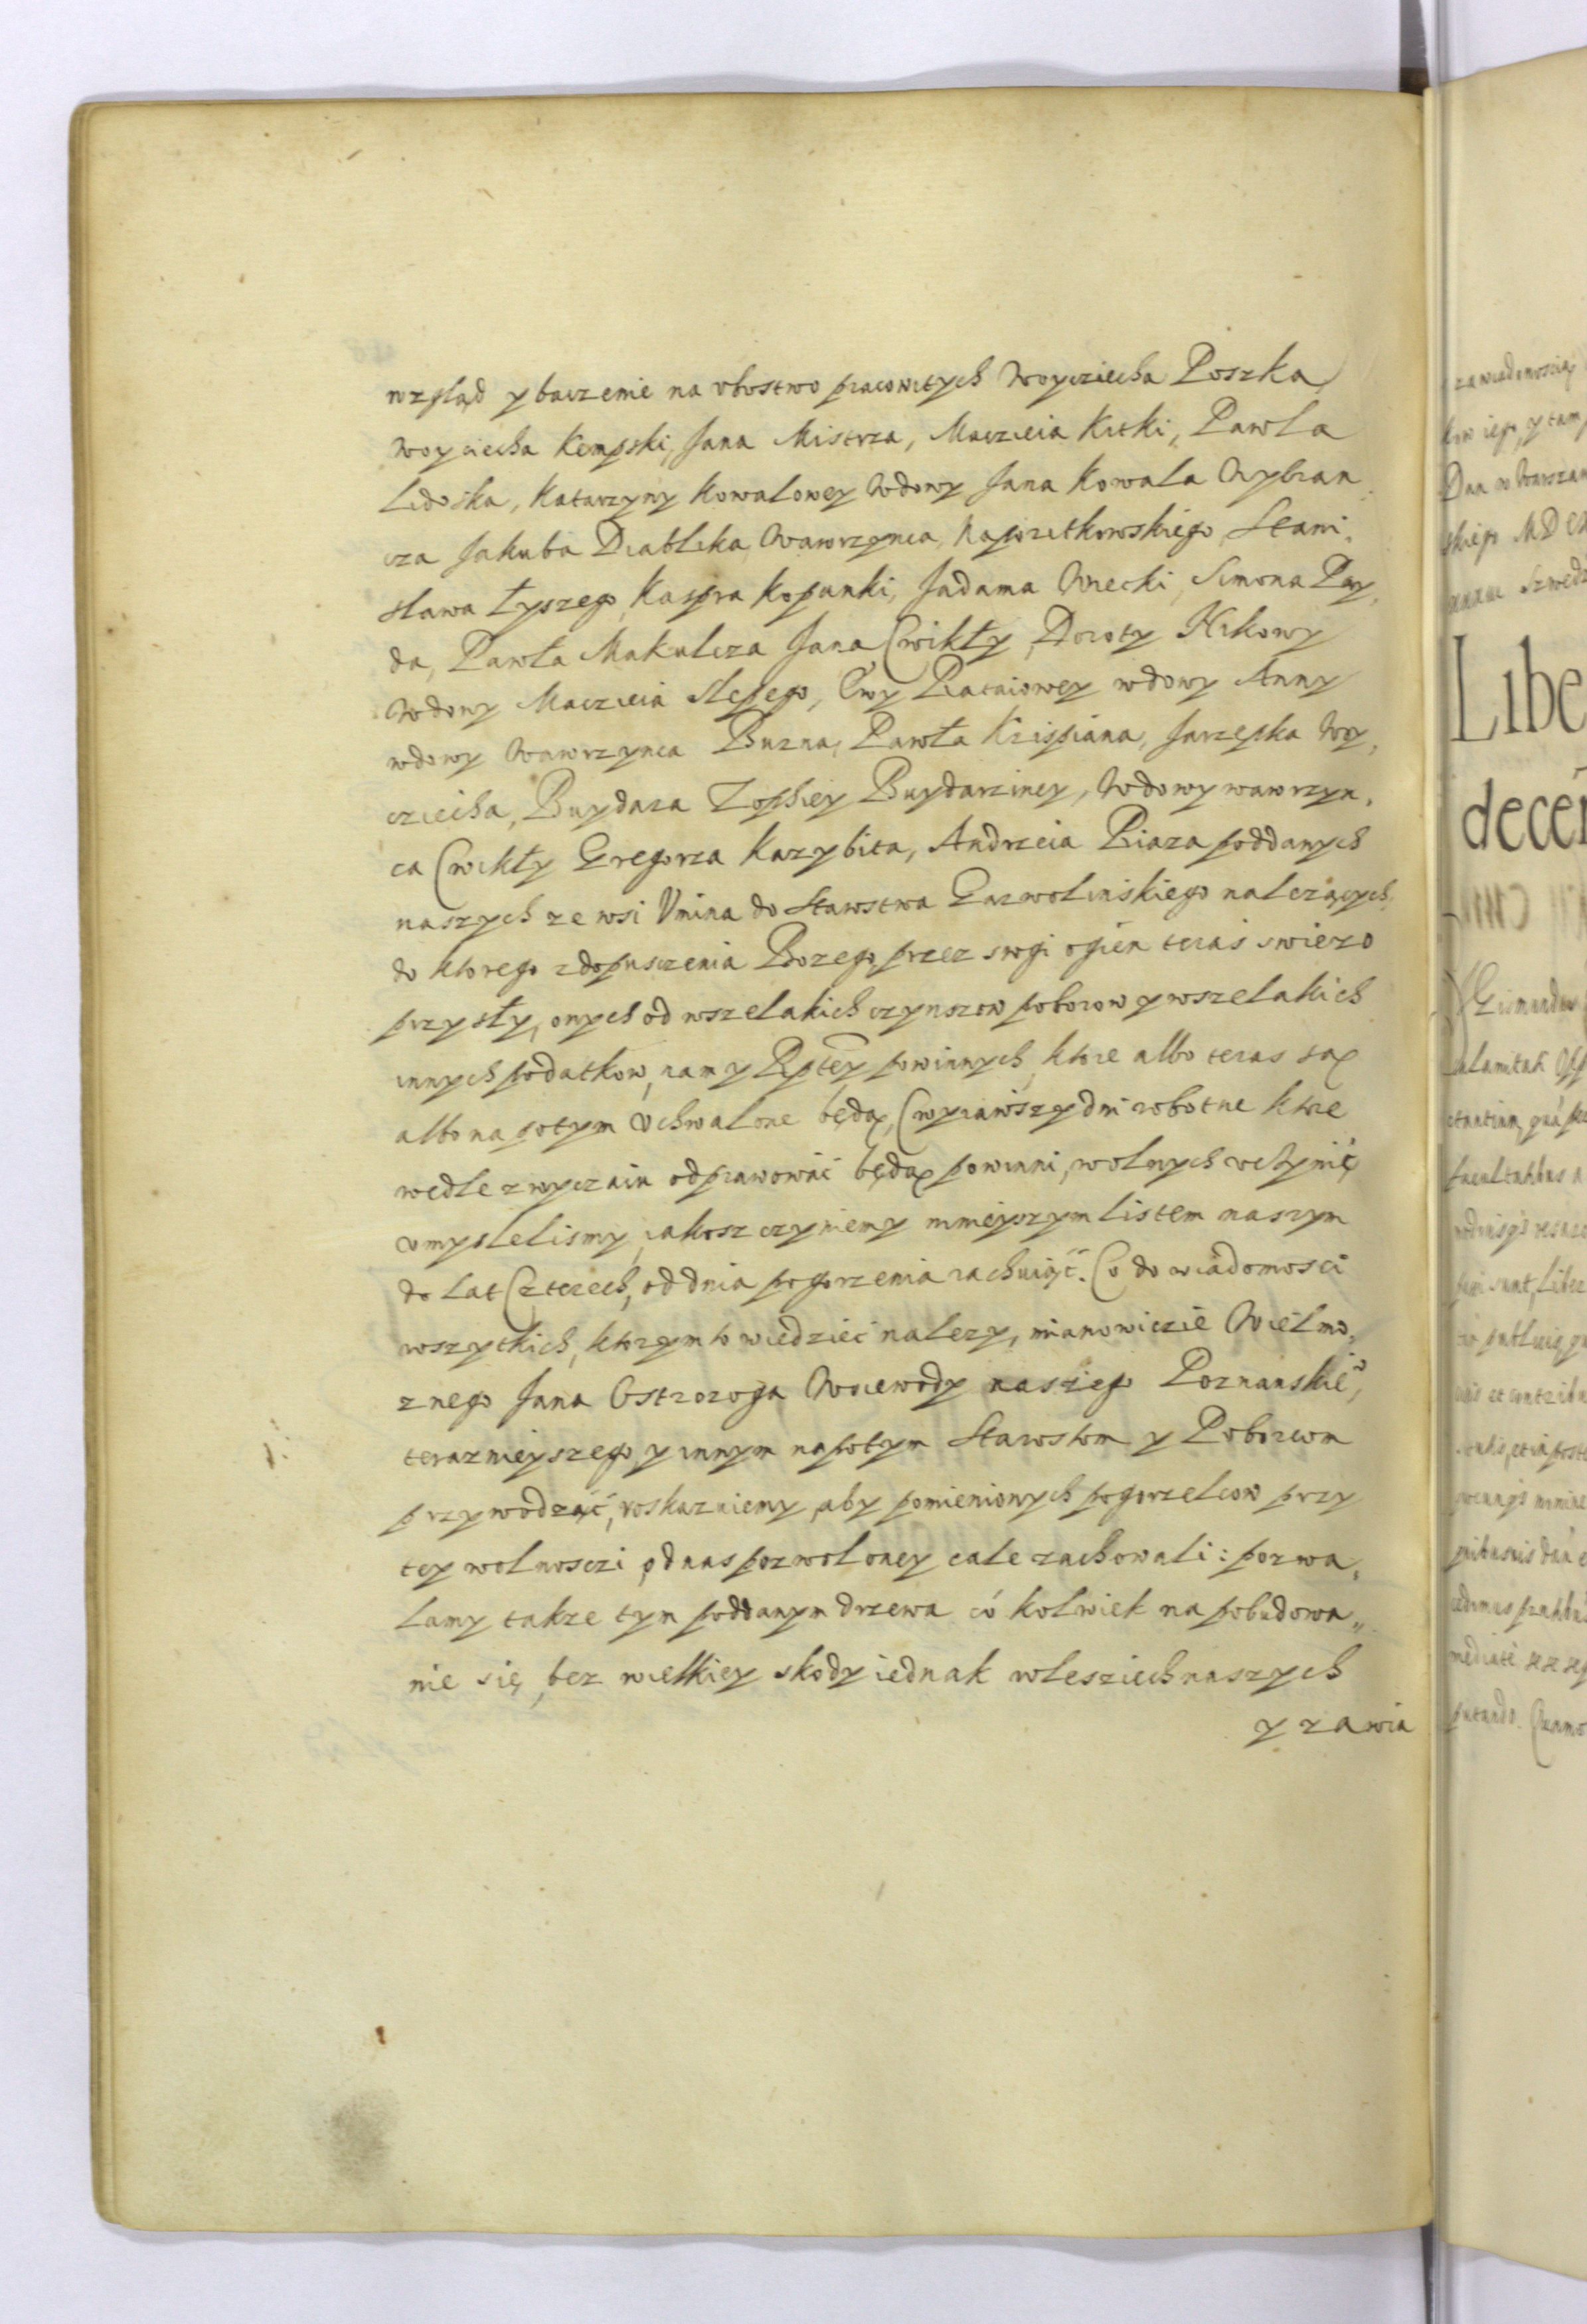 wzgląd y baczenie na vbostwo pracowitych Woyciecha Poszka,
Woyciecha Kempski, Jana Mistrza, Maczieia Kitki, Pawla
Lidoska, Katarzyny Kowalowey Wdowy Jana Kowala Wybran
cza Jakuba Diablika, Wawrzynca, Stani,
sława Łyszego, Kaspra Kopanki, Jadama Wiecki, Simona Pay,
da, Pawła Makulcza Jana Cwikły, Doroty Hikowy
Wdowy Maczieia Slepego, Ewy Rataiowey wdowy Anny
wdowy Wawrzynca Buzna, Pawła Krispiana, Jarzepka Woy,
cziecha, Buydara Zophiey Buydarziney, Wdowy wawrzyn,
ca Cwikły Gregorza Kazybita, Andrzeia Piaza poddanych
naszych ze wsi Vnina do Starostwa Garwolinskiego nalezących,
do ktorego z dopusczenia Bozego przez srogi ogien teras swiezo
przysły, onych od wszelakich czynszow poborow y wszelakich
innych podatkow, nam y Rptey powinnych, ktore albo teras są
albo na potym vchwalone będą, (wyiawszy dni robotne ktore
wedle zwyczaiu odprawować będą powinni, wolnych vczynić
vmyslelismy, iakosz czyniemy ninieyszym listem naszym
do lat Czterech, od dnia pogorzenia rachuiąć. Co do wiadomosci
wszytkich, ktorym to wiedzieć nalezy, mianowiczie Wielmo,
znego Jana Ostroroga Woiewody naszego Poznanskie,
teraznieyszego, y innym napotym Starostom y Poborcom
przywodząć, roskazuiemy, aby pomienionych pogorzelcow przy
tey wolnosczi od nas pozwoloney cale zachowali: pozwa,
lamy takze tym poddanym drzewa có kolwiek na pobudowa„
nie się, bez wielkiey skody iednak w lesziech naszych
y zawia
Libe
decen